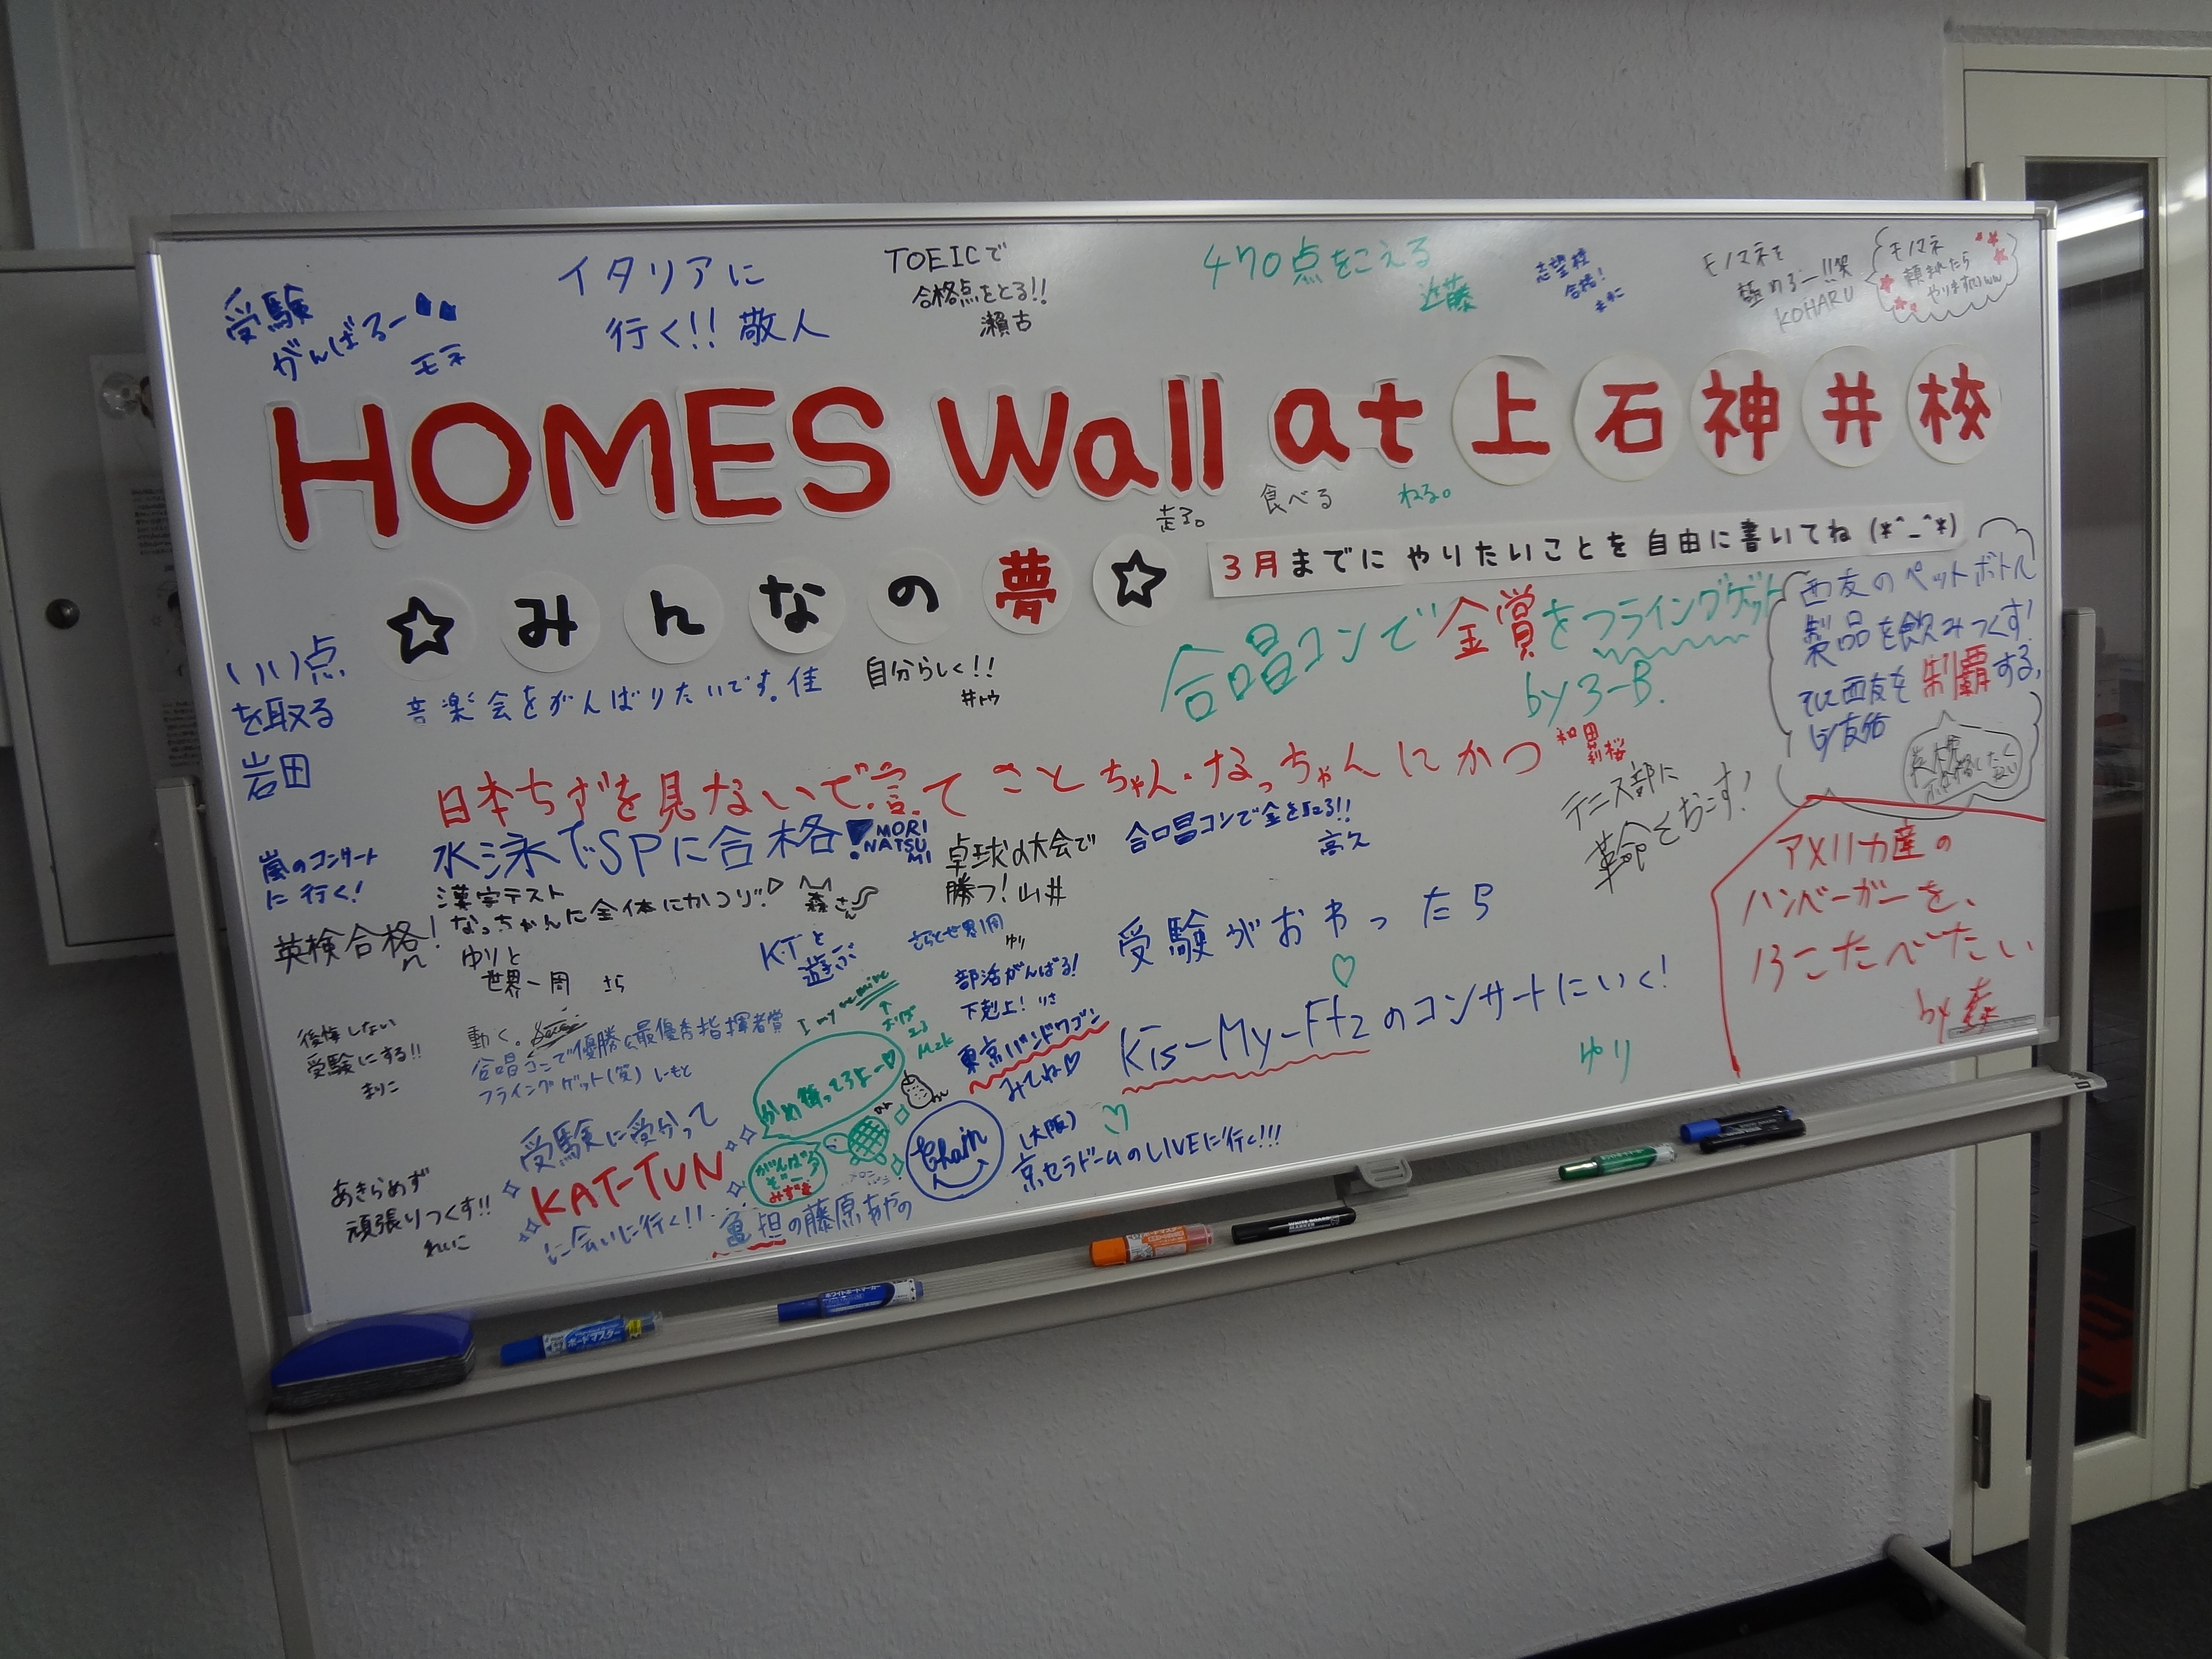 受験
がんばるー
モネ
イタリアに
行く!! 敬人
TOEICで
合格点をとる!!
瀬古
470点をこえる
近藤
志望校
合格!
モノマネを
極めるー!!笑
KOHARU
モノマネ
頼まれたら
やりますょww
HOMES Wall at 上石神井校
走る。
食べる
ねる。
☆みんなの夢☆
3月までに やりたいことを 自由に書いてね (*^_^*)
いい点
を取る
岩田
音楽会をがんばりたいです。佳
自分らしく!!
合唱コンで金賞をフライングゲット
by 3-B.
西友のペットボトル
製品を飲みつくす!
西友を制覇する,
by友佑
日本ちずを見ないで言って ことちゃん・なっちゃんにかつ
和田
莉桜
テニス部に
革命をおこす!
水泳でSPに合格!
MORI
NATSU
MI
卓球の大会で
勝つ!山井
合口昌コンで金を取る!!
高久
アメリカ産の
ハンバーガーを、
13こたべたい
by 森
嵐のコンサート
に行く!
英検合格!
漢字テスト
なっちゃんに全体にかつり!!
森さん
ゆりと
世界一周 さら
K.Tと
遊ぶ
さらと世界1周
ゆり
部活がんばる!
下剋上! りさ
受験がおわったら
Kis-My-Ft2のコンサートにいく!
ゆり
後悔しない
受験にする!!
まりこ
動く。
合唱コンで優勝&最優秀指揮者賞
フライングゲット(笑) しーもと
I my me mine
東京バンドワゴン
みてね♡
かめ待っててろよー♡
がんばろ
ぞー
みずき
Chain
(大阪)
京セラドームのLIVEに行く!!!
受験に受かって
KAT-TUN
に会いに行く!!
亀担の藤原あやの
あきらめず
頑張りつくす!!
れいこ
ボードマスター
ホワイトボードマーカー
WHITE BOARD
MARKER